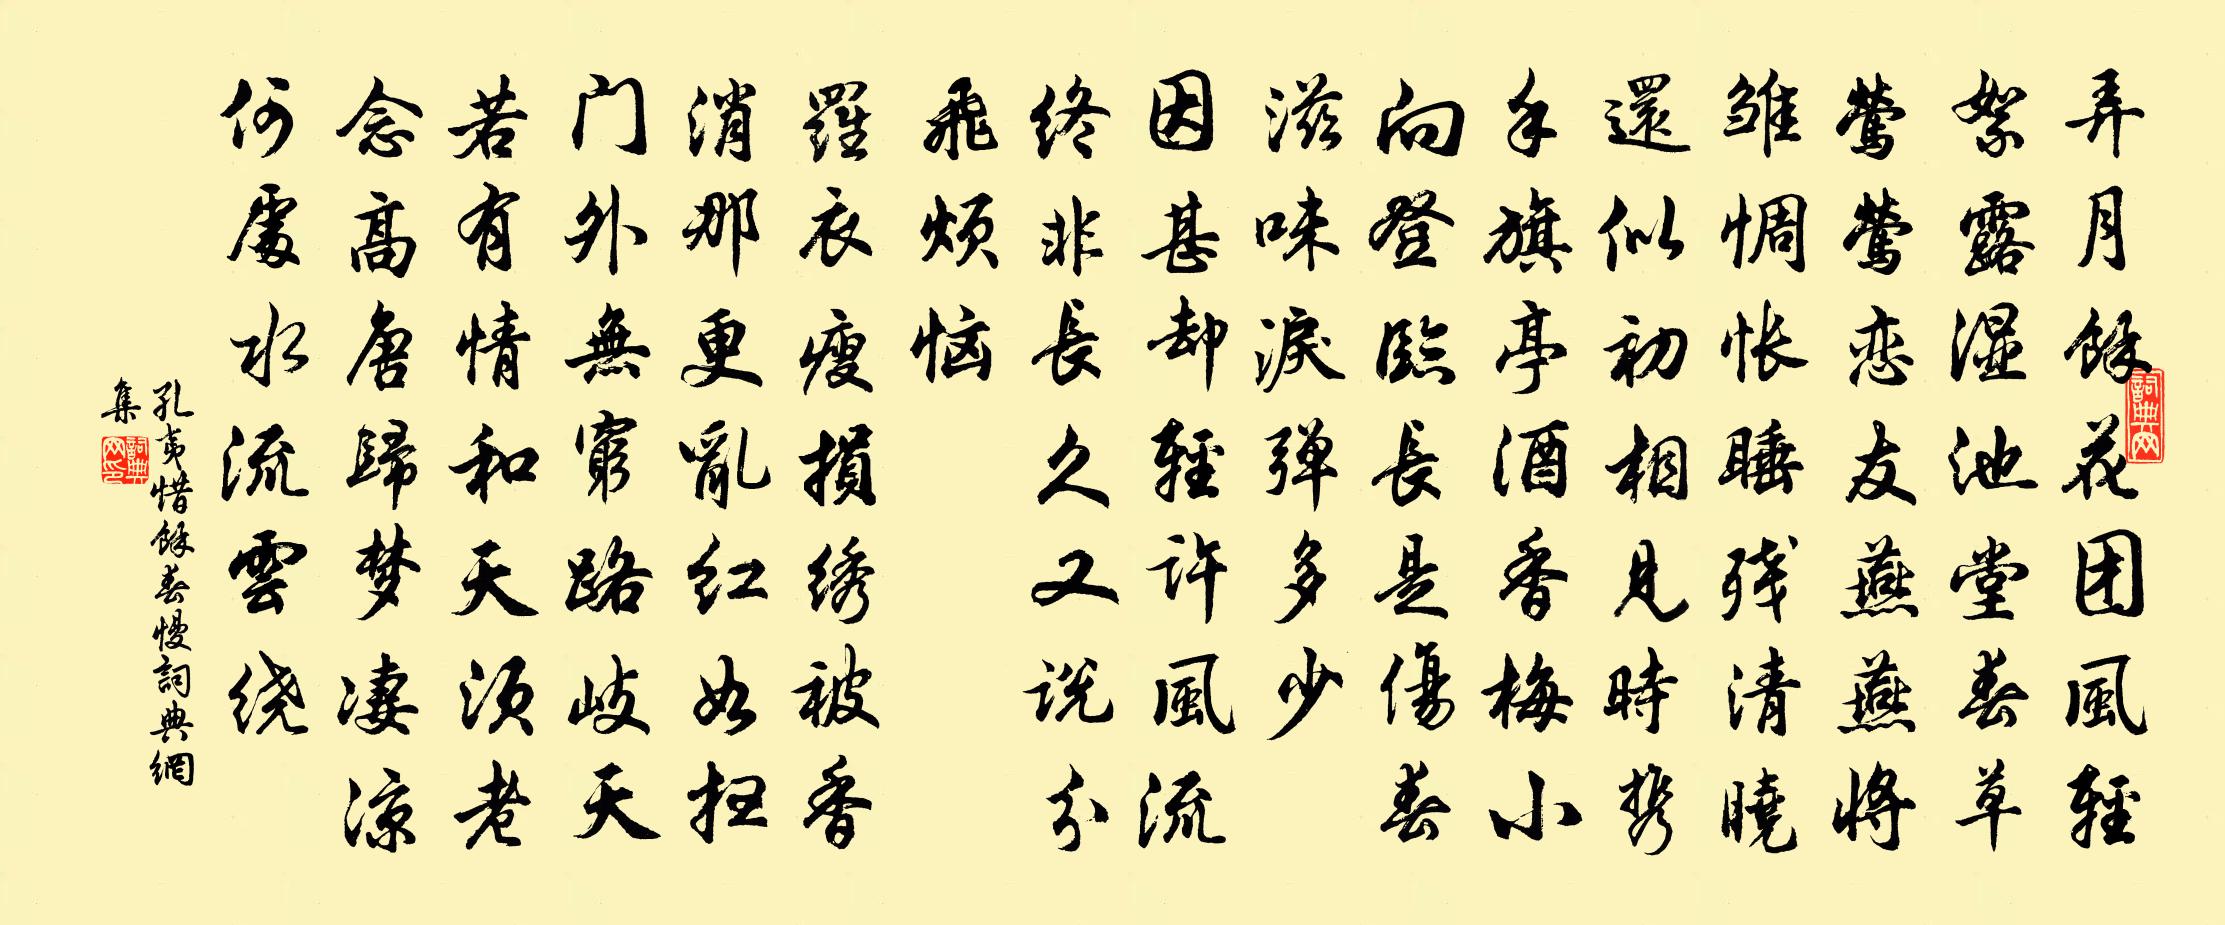 弄月餘花团風輕
絮露湿池堂春草
莺莺恋友燕燕将
雏惆怅睡残清曉
還似初相見時携
手旗亭酒香梅小
向登臨長是傷春
滋味淚弹多少
因甚却輕許風流
終非長久又说分
飛烦恼
羅衣瘦損绣被香
消那更亂红如扫
门外無窮路岐天
若有情和天须老
念高唐歸梦凄涼
何處水流雲绕
孔夷惜餘春慢詞典網
集
詞典网
詞典网印